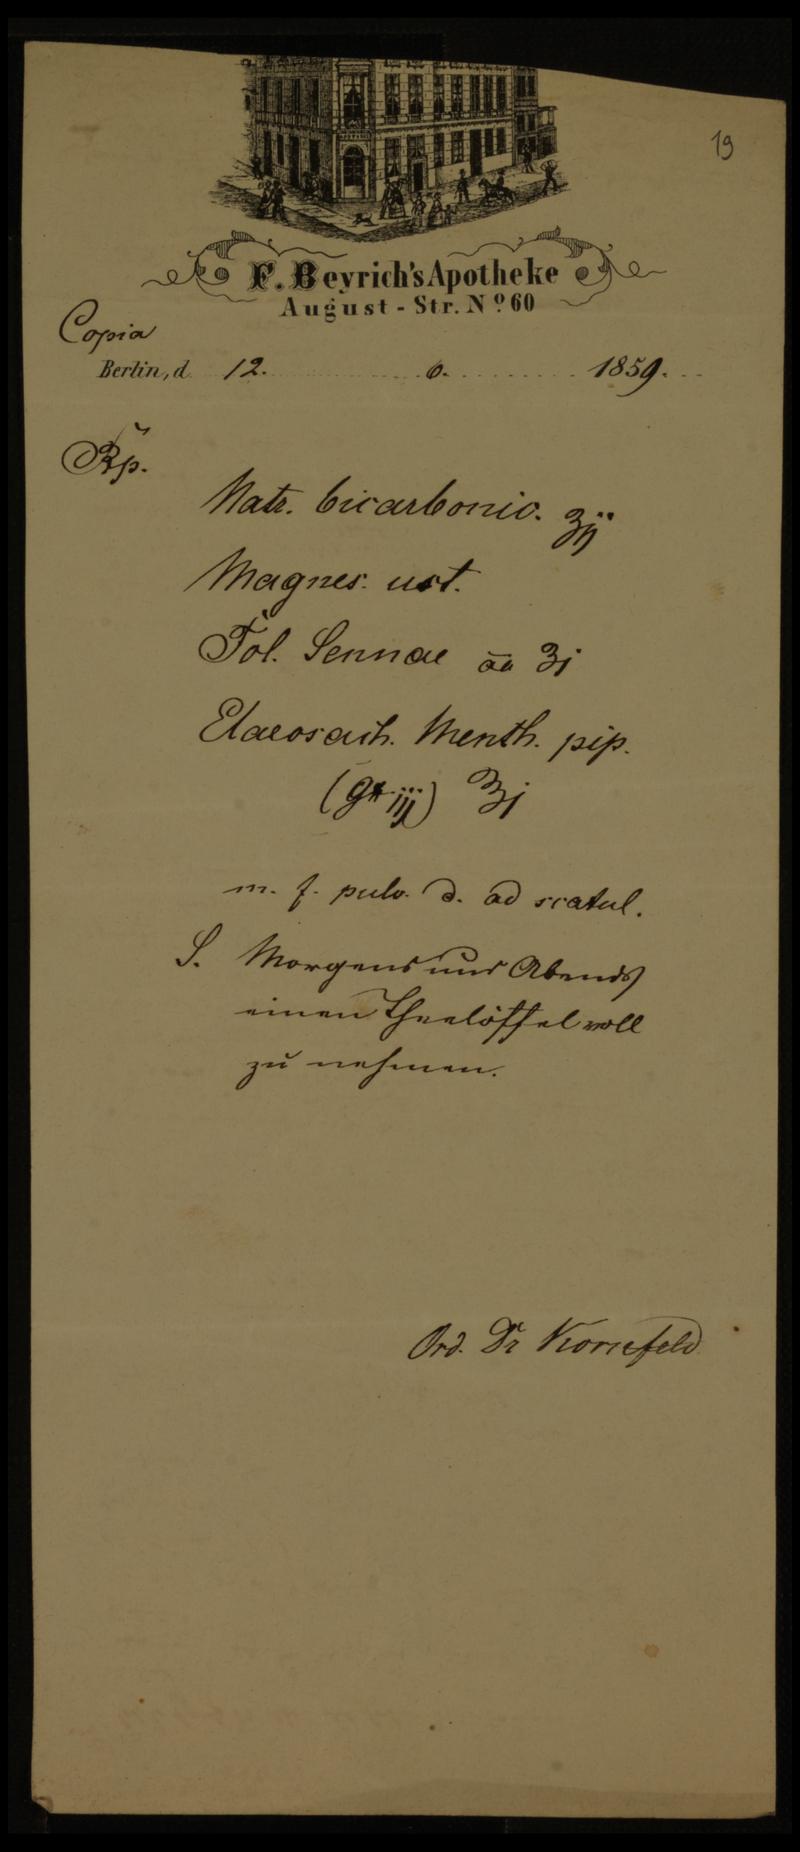 19
F. Beyrich's Apotheke
August-Str. Nº 60
Copia
Berlin, d. 12. 6. 1859.
Rp.
Natr. bicarbonic. ʒij
Magnes. ust.
Fol. Sennae āā ʒj
Elaeosach. Menth. pip.
(gtt iij) ʒj
m. f. pulv. d. ad scatul.
S. Morgens und Abends
einen Theelöffel voll
zu nehmen.
Ord. Dr Kornfeld